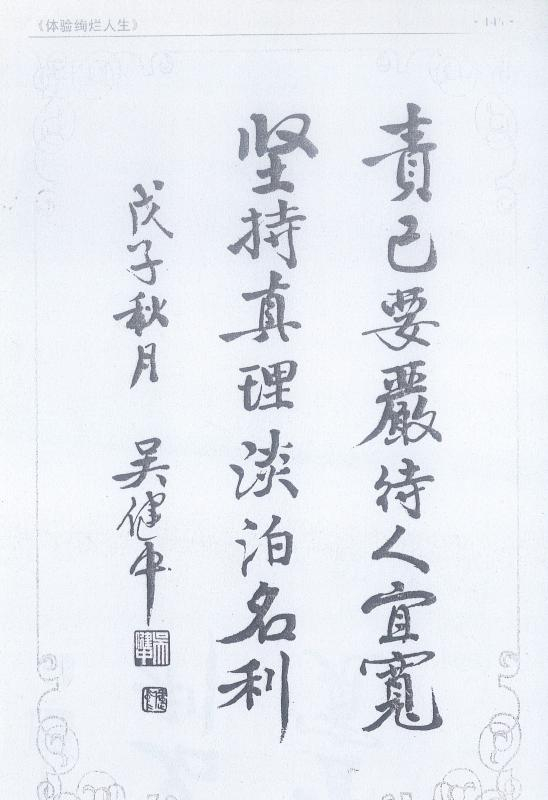 《体验绚烂人生》
·145·
責己要嚴待人宜寬
坚持真理淡泊名利
戊子秋月 吴健中